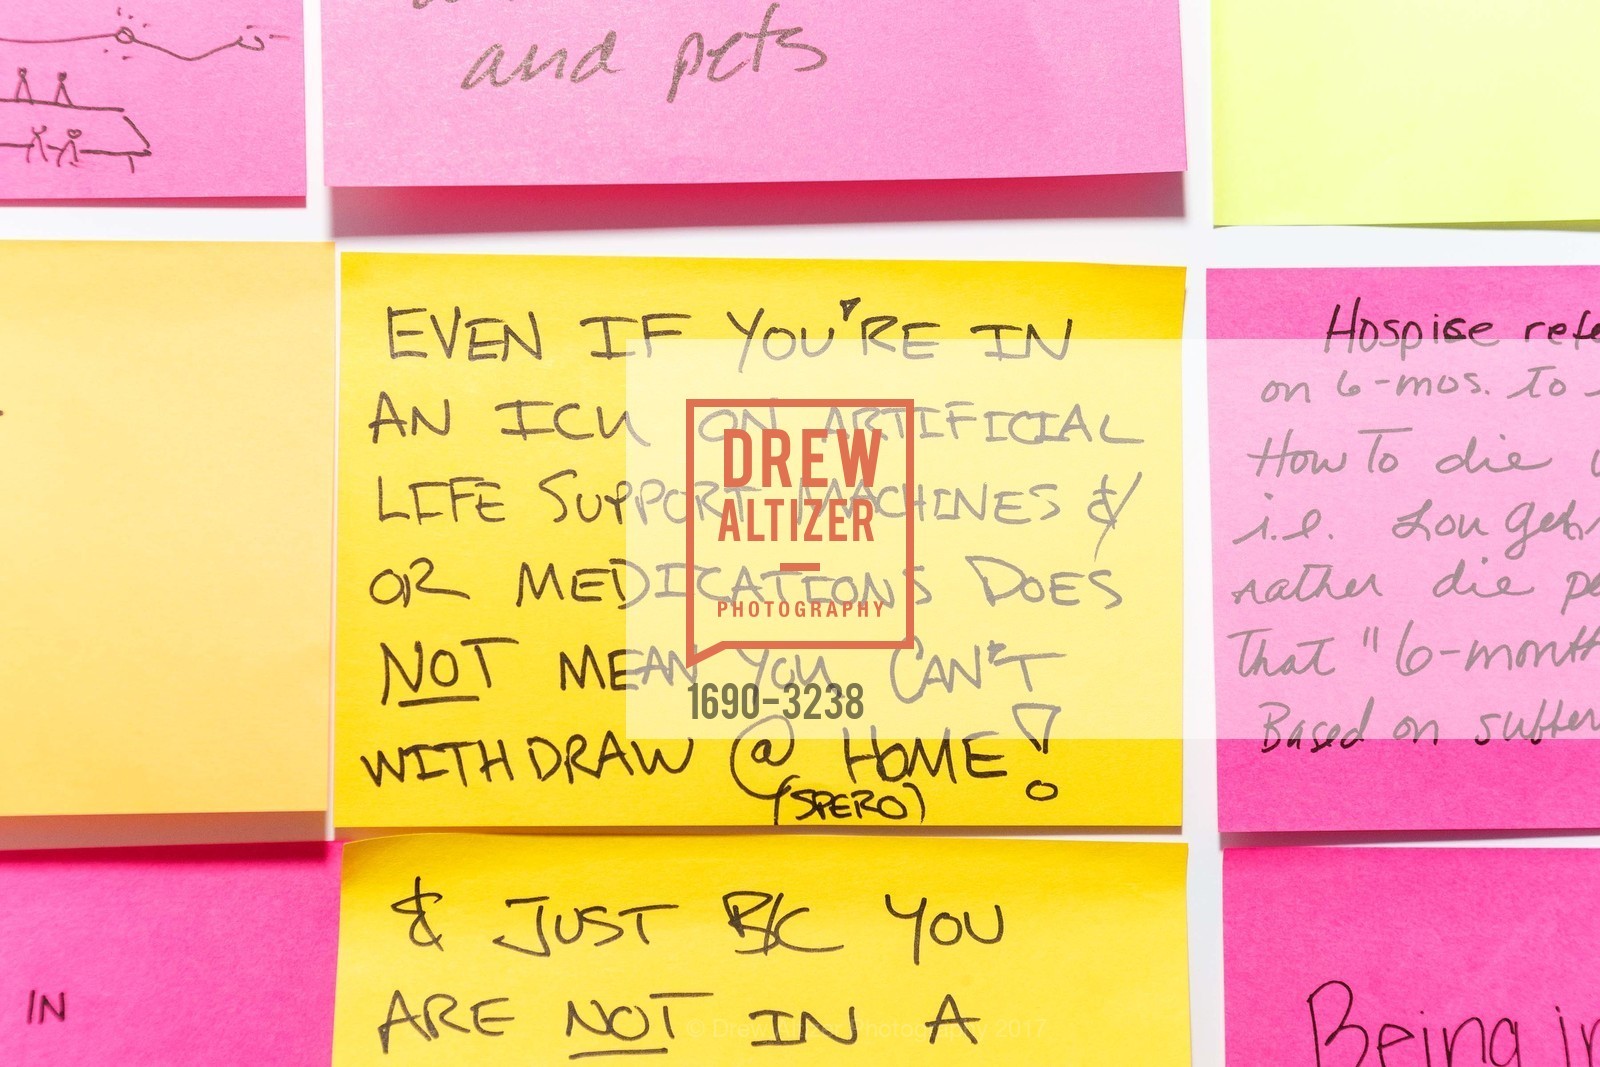 and pets
EVEN IF YOU'RE IN
AN ICU ON ARTIFICIAL
LIFE SUPPORT MACHINES &/
OR MEDICATIONS DOES
NOT MEAN YOU CAN'T
WITHDRAW @ HOME!
(SPERO)
& JUST B/C YOU
ARE NOT IN A
Hospice
on 6-mos. to
How To die
i.e.
rather die
That "6-month
Based on
Being in
IN
DREW
ALTIZER
PHOTOGRAPHY
1690-3238
© Drew Altizer Photography 2017